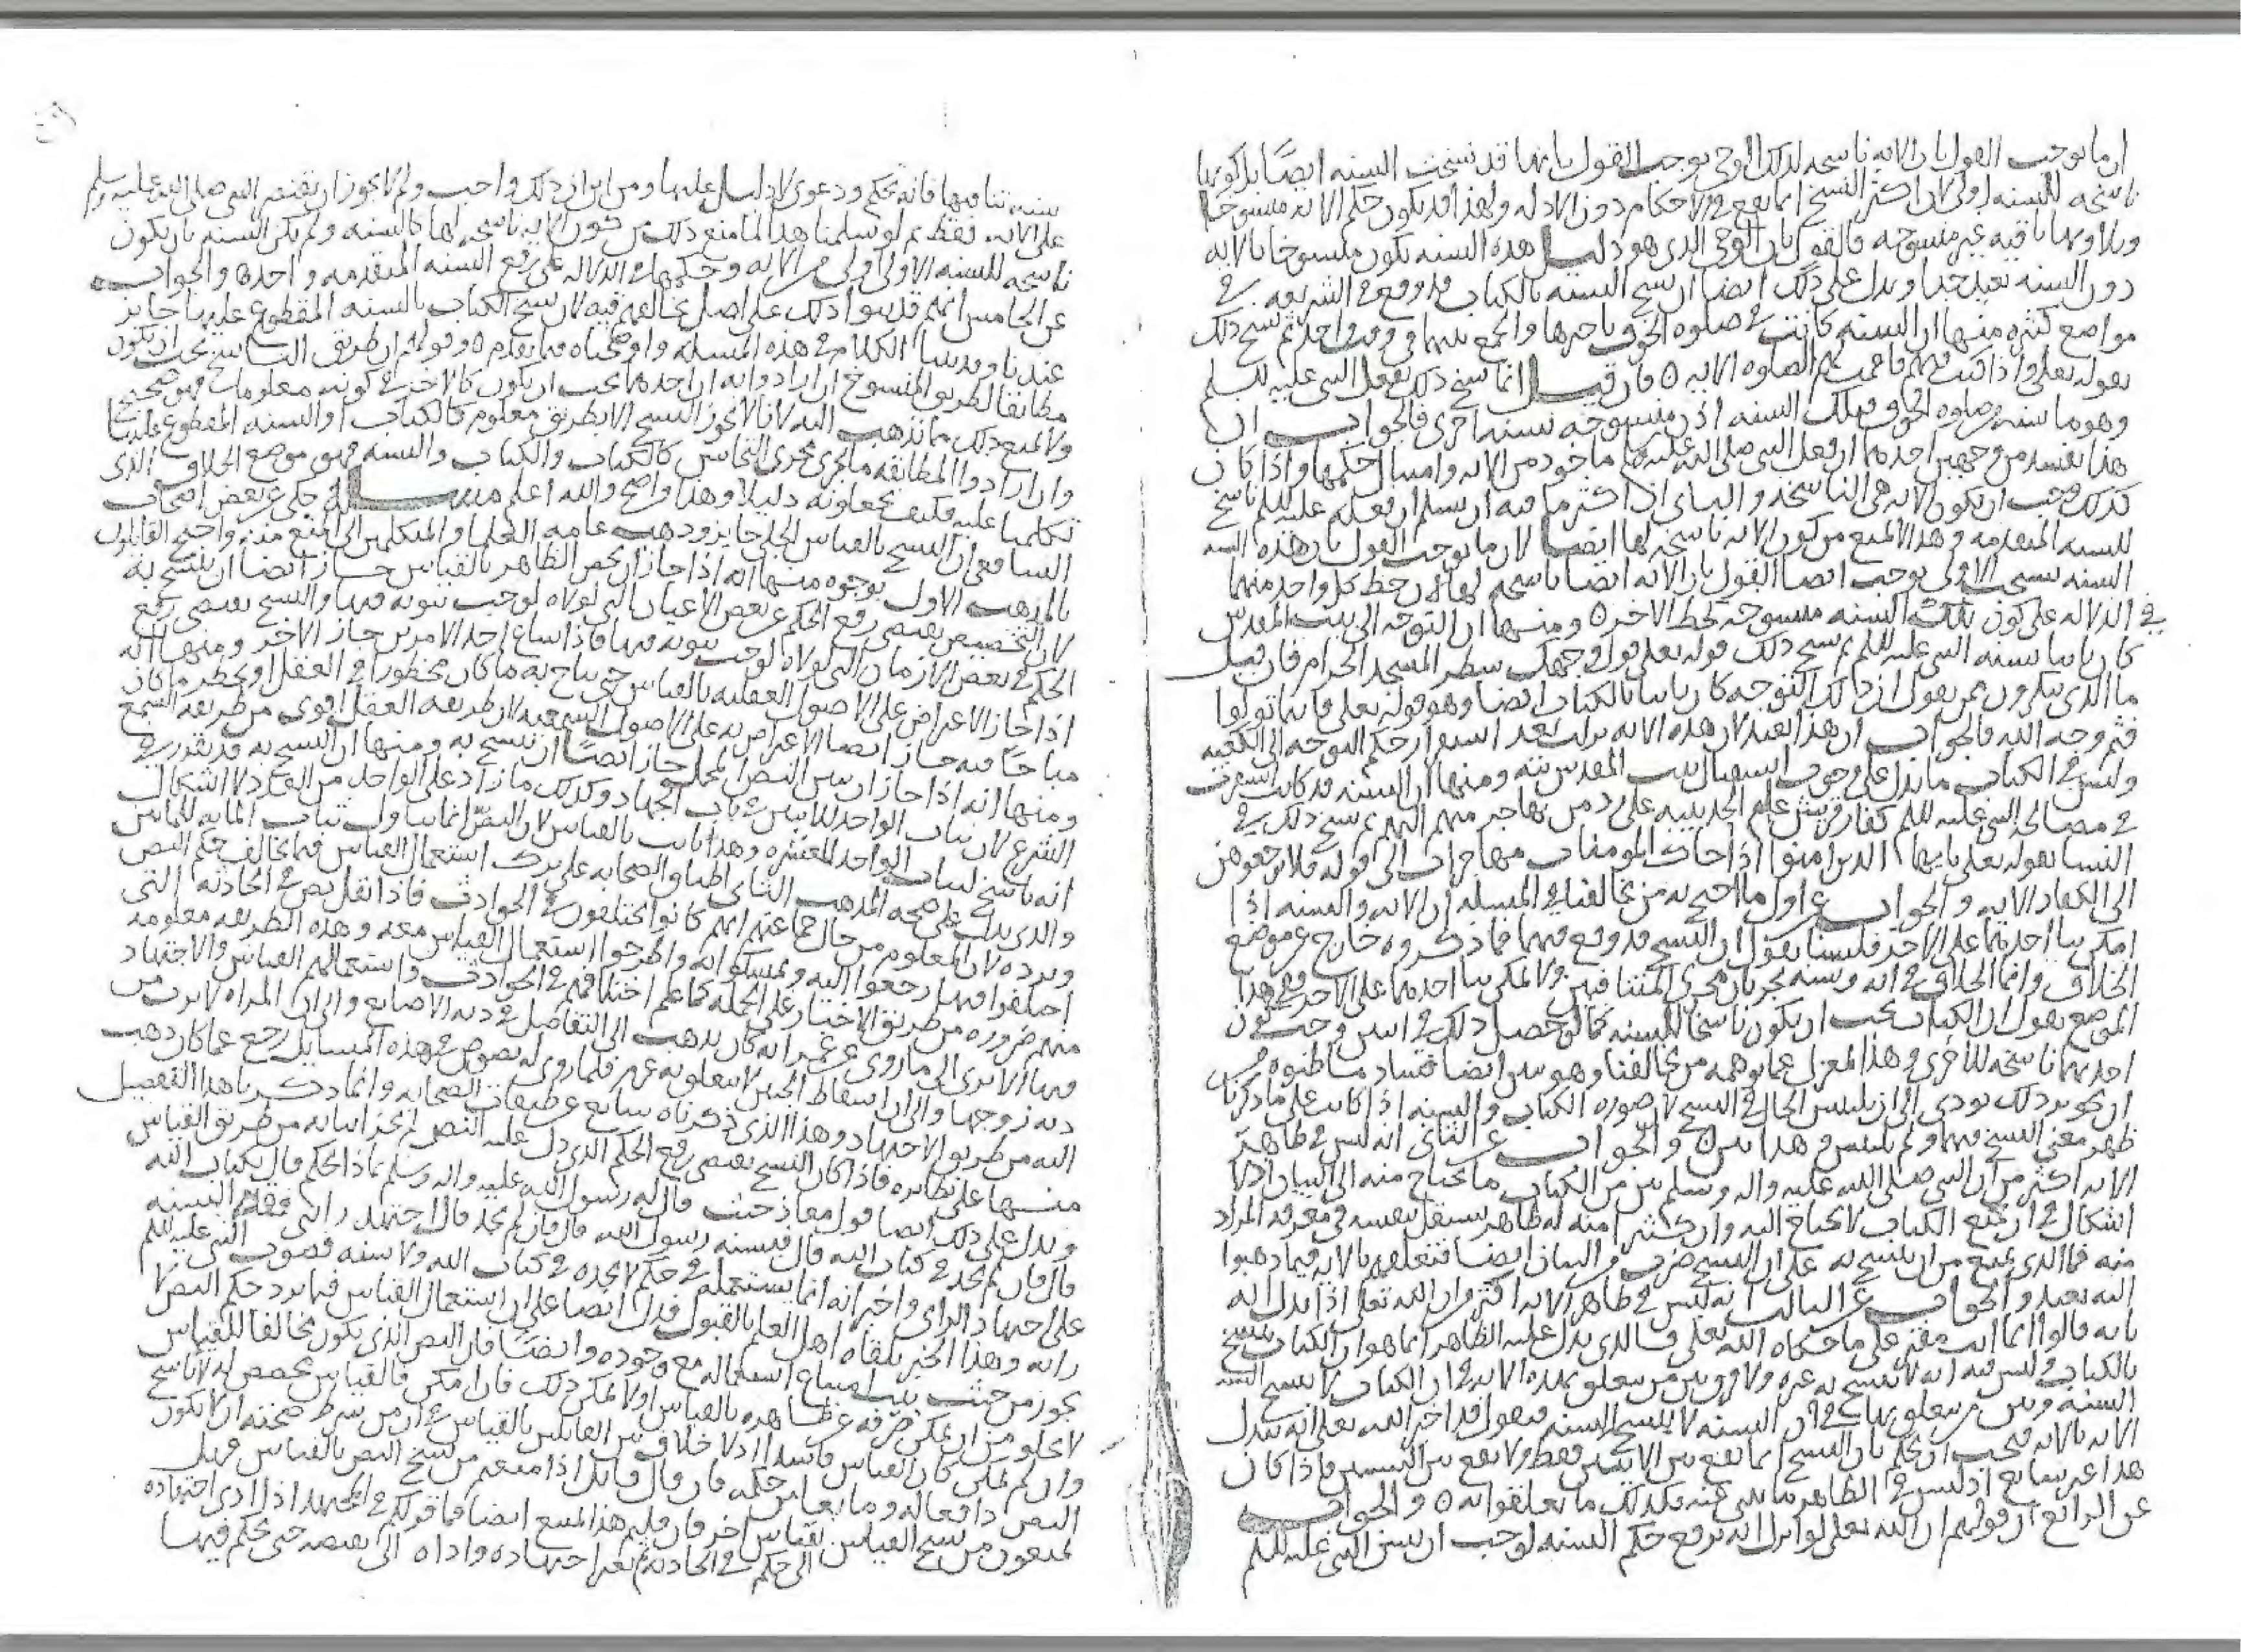 ان ما يوجب القول بان الايه ناسخه لذلك الوحى يوجب القول بانها قد نسخت السنه ايضًا بل كونها
ناسخه للسنه اولى لان اكثر النسخ انما يقع فى الاحكام دون الادله ولهذا قد يكون حكم الايه منسوخا
وتلاوتها باقيه غير منسوخه فالقول بان الوحى الذى هو دليل هذه السنه يكون منسوخا بالايه
دون السنه بعيد جدا ويدل على ذلك ايضا ان نسخ السنه بالكتاب قد وقع فى الشريعه فى
مواضع كثيره منها ان السنه كانت فى صلوه الخوف تاخيرها والجمع بينها فى وقت واحد ثم نسخ ذلك
بقوله تعلى واذا كنت فيهم فاقمت لهم الصلوه الايه ه فان قيل انما نسخ ذلك بفعل النبى عليه السلم
وهو ما سنه من صلوه الخوف فتلك السنه اذن منسوخه بسنه اخرى فالجواب ان
هذا يفسد من وجهين احدهما ان فعل النبى صلى الله عليه ماخوذ من الايه وامتثال حكمها واذا كان
كذلك وجب ان تكون الايه هى الناسخه والثانى ان اكثر ما فيه ان يسلم ان فعله عليه السلم ناسخ
للسنه المتقدمه وهذا لا يمنع من كون الايه ناسخه لها ايضا لان ما يوجب القول بان هذه السنه
السنه نسخت الاولى يوجب ايضا القول بان الايه ايضا ناسخه لها لان حظ كل واحد منهما
فى الدلاله على كون تلك السنه منسوخه كحظ الاخر ه ومنها ان التوجه الى بيت المقدس
كان ثابتا بسنه النبى عليه السلم ثم نسخ ذلك قوله تعلى فول وجهك شطر المسجد الحرام فان قيل
ما الذى تنكرون ممن يقول ان ذلك التوجه كان ثابتا بالكتاب ايضا وهو قوله تعلى فاينما تولوا
فثم وجه الله فالجواب ان هذا لبعيد لان هذه الايه نزلت بعد استقرار حكم التوجه الى الكعبه
وليس فى الكتاب ما يدل على وجوب استقبال بيت المقدس بته ومنها ان السنه قد كانت استقرت
فى مصالحه النبى عليه السلم كفار قريش عام الحديبيه على رد من يهاجر منهم اليهم ثم نسخ ذلك فى
النسا بقوله تعلى يايها الذين امنوا اذا جاك المومنات مهاجرات الى قوله فلا ترجعوهن
الى الكفار الايه والجواب عن اول ما احتج به من خالفنا فى المسله ان الايه والسنه اذا
امكن بنا احدهما على الاخر فلسنا نقول ان النسخ قد وقع فيهما فما ذكروه خارج عن موضع
الخلاف وانما الخلاف فى ايه وسنه يجريان مجرى المتنافيين ولا يمكن بنا احدهما على الاخر ففى هذا
الموضع نقول ان الكتاب يجب ان يكون ناسخا للسنه كما لو حصل ذلك فى ايتين وجب كون
احديهما ناسخه للاخرى وهذا بمعزل عما توهمه من خالفنا وهو يبين ايضا فساد ما ظنوه من
ان تجويز ذلك يودى الى ان يلتبس الحال فى النسخ لان صوره الكتاب والسنه اذا كانت على ما ذكرنا
ظهر معنى النسخ فيهما ولم يلتبس وهذا بين ه والجواب عن الثانى انه ليس فى ظاهر
الايه اكثر من ان النبى صلى الله عليه واله وسلم يبين من الكتاب ما يحتاج منه الى البيان اذ لا
اشكال فى ان جميع الكتاب لا يحتاج اليه وان كثيرا منه له ظاهر يستقل بنفسه فى معرفه المراد
منه فما الذى يمنع من ان ينسخ به على ان النسخ ضرب من البيان ايضا فتعلقهم بالايه فيما ذهبوا
اليه بعيد والجواب عن الثالث انه ليس فى ظاهر الايه اكثر من ان الله تعلى اذا بدل ايه
بايه قالوا انما انت مفتر على ما حكاه الله تعلى فالذى يدل عليه الظاهر انما هو ان الكتاب ينسخ
بالكتاب وليس فيه انه لا ينسخ به غيره ولا فرق بين من يتعلق بهذه الايه فى ان الكتاب لا ينسخ السنه
السنه وبين من يتعلق بها فى ان السنه لا تنسخ السنه فيقول قد اخبر الله تعلى انه يبدل
الايه بالايه فيجب ان يحكم بان النسخ انما يقع بين الايتين فقط ولا يقع بين السنتين فاذا كان
هذا غير سايغ اذ ليس فى الظاهر ما ينبى عنه فكذلك ما تعلقوا به ه والجواب
عن الرابع ان قولهم ان الله تعلى لو انزل ايه ترفع حكم السنه لوجب ان يبين النبى عليه السلم
سنه تنافيها فانه تحكم ودعوى لا دليل عليها ومن اين ان ذلك واجب ولم لا يجوز ان يقتصر النبى صلى الله عليه وسلم
على الايه فقط ثم لو سلمنا هذا لما منع ذلك من كون الايه ناسخه لها كالسنه ولم يكن السنه بان يكون
ناسخه للسنه الاولى اولى من الايه وحكمهما فى الدلاله على رفع السنه المتقدمه واحد ه والجواب
عن الخامس انهم قد بنوا ذلك على اصل نخالفهم فيه لان نسخ الكتاب بالسنه المقطوع عليها جايز
عندنا وقد بينا الكلام فى هذه المسله واوضحناه فيما تقدم ه وقولهم ان طريق الناسخ يجب ان يكون
مطابقا لطريق المنسوخ ان ارادوا به ان احدهما يجب ان يكون كالاخر فى كونه معلوما فهو صحيح
ولا يمنع ذلك مما نذهب اليه لانا لا نجوز النسخ الا بطريق معلوم كالكتاب او السنه المقطوع عليها
وان ارادوا المطابقه ما يجرى مجرى التجانس كالكتاب والكتاب والسنه فهو موضع الخلاف الذى
تكلمنا عليه فكيف يجعلونه دليلا وهذا واضح والله اعلم مسله حكى عن بعض اصحاب
الشافعى ان النسخ بالقياس الجلى جايز وذهب عامه العلما والمتكلمين الى المنع منه واحتج القايلون
بالمذهب الاول بوجوه منها انه اذا جاز ان يخص الظاهر بالقياس جاز ايضا ان ينسخ به
لان التخصيص يقتضى رفع الحكم عن بعض الاعيان التى لولاه لوجب ثبوته فيها والنسخ يقتضى رفع
الحكم فى بعض الازمان التى لولاه لوجب ثبوته فيها فاذا ساغ احد الامرين جاز الاخر ومنها انه
اذا جاز الاعتراض على الاصول العقليه بالقياس حتى يباح به ما كان محظورا فى العقل او يحظر ما كان
مباحًا فيه جاز ايضا الاعتراض به على الاصول السمعيه لان طريقه العقل اقوى من طريقه السمع
ومنها انه اذا جاز ان يبين النص المجمل جاز ايضًا ان ينسخ به ومنها ان النسخ به قد تقرر فى
الشرع لان ثبات الواحد للاثنين فى باب الجهاد وكذلك ما زاد على الواحد من العدد لا اشكال
انه ناسخ لثبات الواحد للعشره وهذا ثابت بالقياس لان النص انما تناول ثبات المايه للمايتين
والذى يدل على صحه المذهب الثانى اطباق الصحابه على ترك استعمال القياس فيما يخالف حكم النص
ويرده لان المعلوم من حال جماعتهم انهم كانوا يختلفون فى الحوادث فاذا نقل نص فى الحادثه التى
اختلفوا فيها رجعوا اليه وتمسكوا به واطرحوا استعمال القياس معه وهذه الطريقه معلومه
منهم ضروره من طريق الاخبار على الجمله كما علم اختلافهم فى الحوادث واستعمالهم القياس والاجتهاد
فيها الا ترى الى ما روى عن عمر انه كان يذهب الى التفاضل فى ديه الاصابع والى ان المراه لا ترث من
ديه زوجها والى ان اسقاط الجنين لا يتعلق به غره فلما روى له نصوص فى هذه المسايل رجع عما كان ذهب
اليه من طريق الاجتهاد وهذا الذى ذكرناه شايع عن طبقات الصحابه وانما ذكرنا هذا التفصيل
منها على نظايره فاذا كان النسخ يقتضى رفع الحكم الذى دل عليه النص لم يجز اثباته من طريق القياس
ويدل على ذلك ايضا قول معاذ حيث قال له رسول الله عليه واله وسلم بماذا تحكم قال بكتاب الله
قال فان لم تجد فى كتاب الله قال فبسنه رسول الله قال فان لم تجد قال اجتهد رايى فقدم السنه
على اجتهاد الراى واخبر انه انما يستعمله فى حكم لا يجده فى كتاب الله ولا سنه فصوب النبى عليه السلم
رايه وهذا الخبر تلقاه اهل العلم بالقبول فدل ايضا على ان استعمال القياس فيما يرد حكم النص لا
يجوز من حيث بينا امتناع استعماله مع وجوده وايضًا فان النص الذى يكون مخالفا للقياس
لا يخلو من ان يمكن صرفه عن ظاهره بالقياس او لا يمكن ذلك فان امكن فالقياس مخصص له لا ناسخ
وان لم يمكن كان القياس فاسدا اذ لا خلاف بين القايلين بالقياس فى ان من شرط صحته ان لا يكون
النص دافعا له وما يعا حكمه فان قال قايل اذا منعتم من نسخ النص بالقياس فهل
تمنعون من نسخ القياس بقياس اخر فان قلتم هذا المنع ايضا فما قولكم فى المجتهد اذا ادى اجتهاده
الى حكم فى الحادثه ثم تغير اجتهاده واداه الى نقيضه حتى يحكم فيها